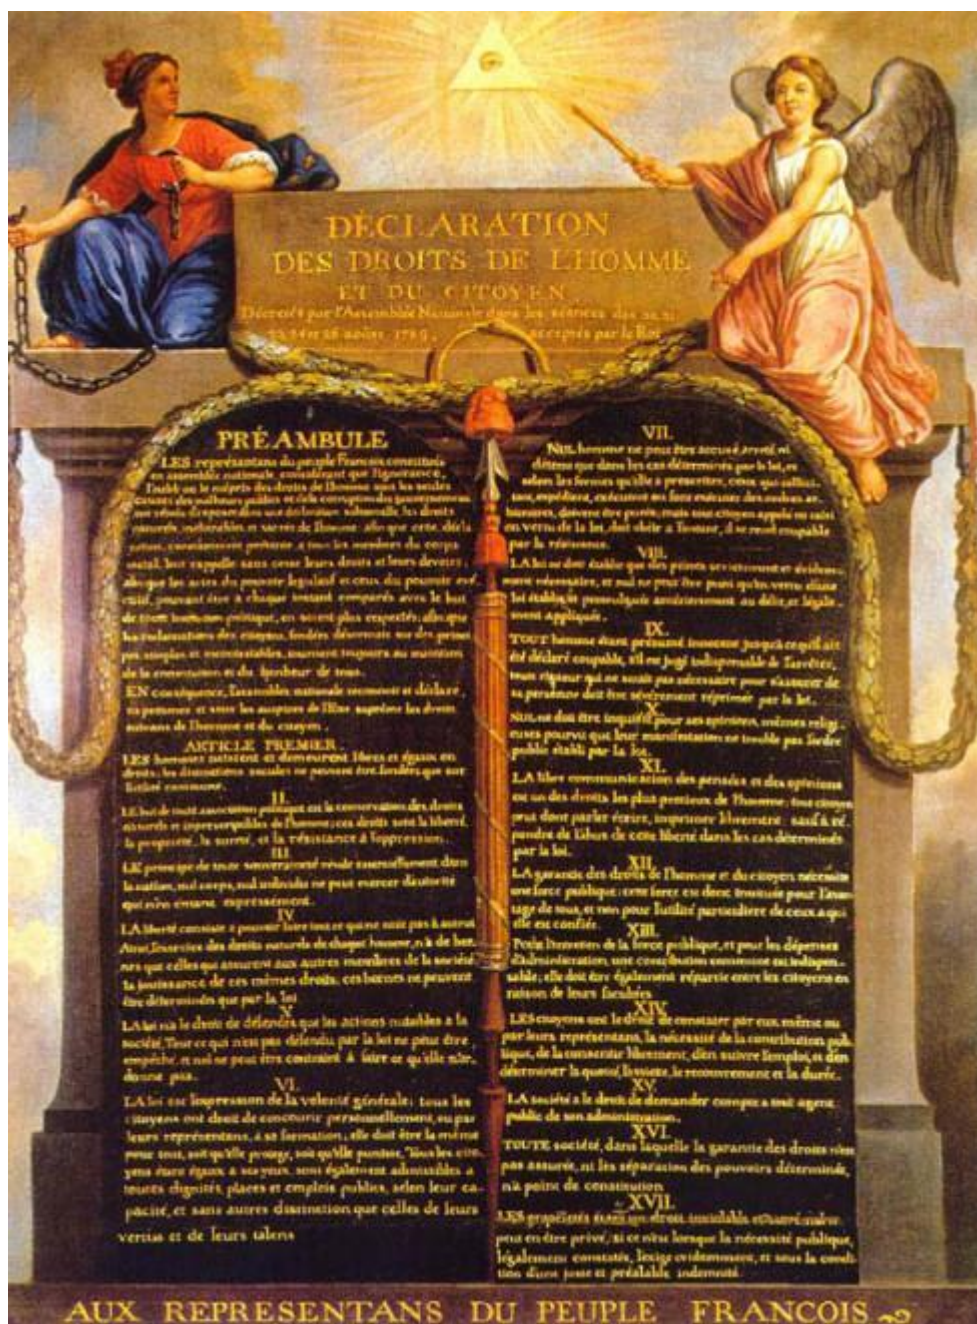 DÈCLARATION
DES DROITS DE L'HOMME
ET DU CITOYEN
Décretés par l'Assemblée Nationale dans les séances des 20. 21.
23. 24 et 26 aoûst 1789, acceptés par le Roi
PRÉAMBULE
LES représentans du peuple Francois, constitués
en assemblée nationale, considérant que l'ignorance,
l'oubli ou le mépris des droits de l'homme sont les seules
causes des malheurs publics et de la corruption des gouvernemens
ont résolu d'exposer dans une déclaration solemnelle, les droits
naturels, inaliénables et sacrés de l'homme: afin que cette décla
ration, constamment présente a tous les membres du corps
social, leur rappelle sans cesse leurs droits et leurs devoirs,
afin que les actes du pouvoir législatif et ceux du pouvoir exé
cutif, pouvant être à chaque instant comparés avec le but
de toute institution politique, en soient plus respectés; afin que
les réclamations des citoyens, fondées désormais sur des prin
cipes simples et incontestables, tournent toujours au maintien
de la constitution et du bonheur de tous.
EN conséquence, l'assemblée nationale reconnoit et déclare,
en présence et sous les auspices de l'Etre suprême les droits
suivans de l'homme et du citoyen.
ARTICLE PREMIER.
LES hommes naissent et demeurent libres et égaux en
droits, les distinctions sociales ne peuvent être fondées que sur
l'utilité commune.
II.
LE but de toute association politique est la conservation des droits
naturels et imprescriptibles de l'homme; ces droits sont la liberté,
la propriété, la sureté, et la résistance à l'oppression.
III.
LE principe de toute souveraineté réside essentiellement dans
la nation, nul corps, nul individu ne peut exercer d'autorité
qui n'en émane expressément.
IV.
LA liberté consiste a pouvoir faire tout ce qui ne nuit pas à autrui
Ainsi, l'exercice des droits naturels de chaque homme, n'a de bor_
nes que celles qui assurent aux autres membres de la société
la jouissance de ces mêmes droits, ces bornes ne peuvent
être déterminées que par la loi
V.
LA loi n'a le droit de défendre que les actions nuisibles à la
société. Tout ce qui n'est pas défendu par la loi ne peut être
empêché, et nul ne peut être contraint à faire ce qu'elle n'or_
donne pas.
VI.
LA loi est l'expression de la volonté générale; tous les
citoyens ont droit de concourir personnellement, ou par
leurs représentans, à sa formation; elle doit être la même
pour tous, soit qu'elle protege, soit qu'elle punisse, Tous les cito_
yens étant égaux à ses yeux, sont également admissibles a
toutes dignités, places et emplois publics, selon leur ca_
pacité, et sans autres distinction que celles de leurs
vertus et de leurs talens
VII.
NUL homme ne peut être accusé, arreté, ni
détenu que dans les cas déterminés par la loi, et
selon les formes qu'elle a prescrites, ceux qui sollici
tent, expédient, exécutent ou font exécuter des ordres ar
bitraires, doivent être punis; mais tout citoyen appelé ou saisi
en vertu de la loi, doit obéir a l'instant, il se rend coupable
par la résistance.
VIII.
LA loi ne doit établir que des peines strictement et évidem_
ment nécessaire, et nul ne peut être puni qu'en vertu d'une
loi établie et promulguée antérieurement au délit, et légale_
ment appliquée.
IX.
TOUT homme étant présumé innocent jusqu'à ce qu'il ait
été déclaré coupable, s'il est jugé indispensable de l'arrêter,
toute rigueur qui ne serait pas nécessaire pour s'assurer de
sa personne doit être sévèrement réprimée par la loi.
X.
NUL ne doit être inquiété pour ses opinions, mêmes relig_
euses pourvu que leur manifestation ne trouble pas l'ordre
public établi par la loi.
XI.
LA libre communication des pensées et des opinions
est un des droits les plus precieux de l'homme: tout citoyen
peut donc parler écrire, imprimer librement sauf à ré_
pondre de l'abus de cette liberté dans les cas déterminés
par la loi.
XII.
LA garantie des droits de l'homme et du citoyen nécessite
une force publique; cette force est donc instituée pour l'avan
tage de tous, et non pour l'utilité particulière de ceux a qui
elle est confiée.
XIII.
POUR l'entretien de la force publique, et pour les dépenses
d'administration, une contribution commune est indispen_
sable; elle doit être également répartie entre les citoyens en
raison de leurs facultées
XIV.
LES citoyens ont le droit de constater par eux même ou
par leurs représentans, la nécessité de la contribution pub_
lique, de la consentir librement, d'en suivre l'emploi, et d'en
déterminer la quotité, l'assiette, le recouvrement et la durée.
XV.
LA société a le droit de demander compte a tout agent
public de son administration.
XVI.
TOUTE société, dans laquelle la garantie des droits n'est
pas assurée, ni les séparation des pouvoirs déterminée,
n'a point de constitution
XVII.
LES propriétés étant un droit inviolable et sacré, nul ne
peut en être privé, si ce n'est lorsque la nécessité publique,
légalement constatée, l'exige evidemment, et sous la condi
tion d'une juste et préalable indemnité.
AUX REPRESENTANS DU PEUPLE FRANCOIS